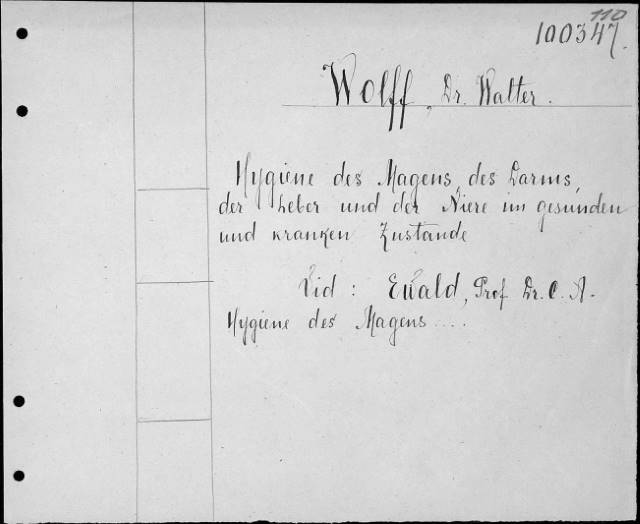 110
100347.
Wolff, Dr. Walter.
Hygiene des Magens, des Darms,
der Leber und der Niere im gesunden
und kranken Zustande
Vid : Ewald, Prof Dr. C. A.
Hygiene des Magens....